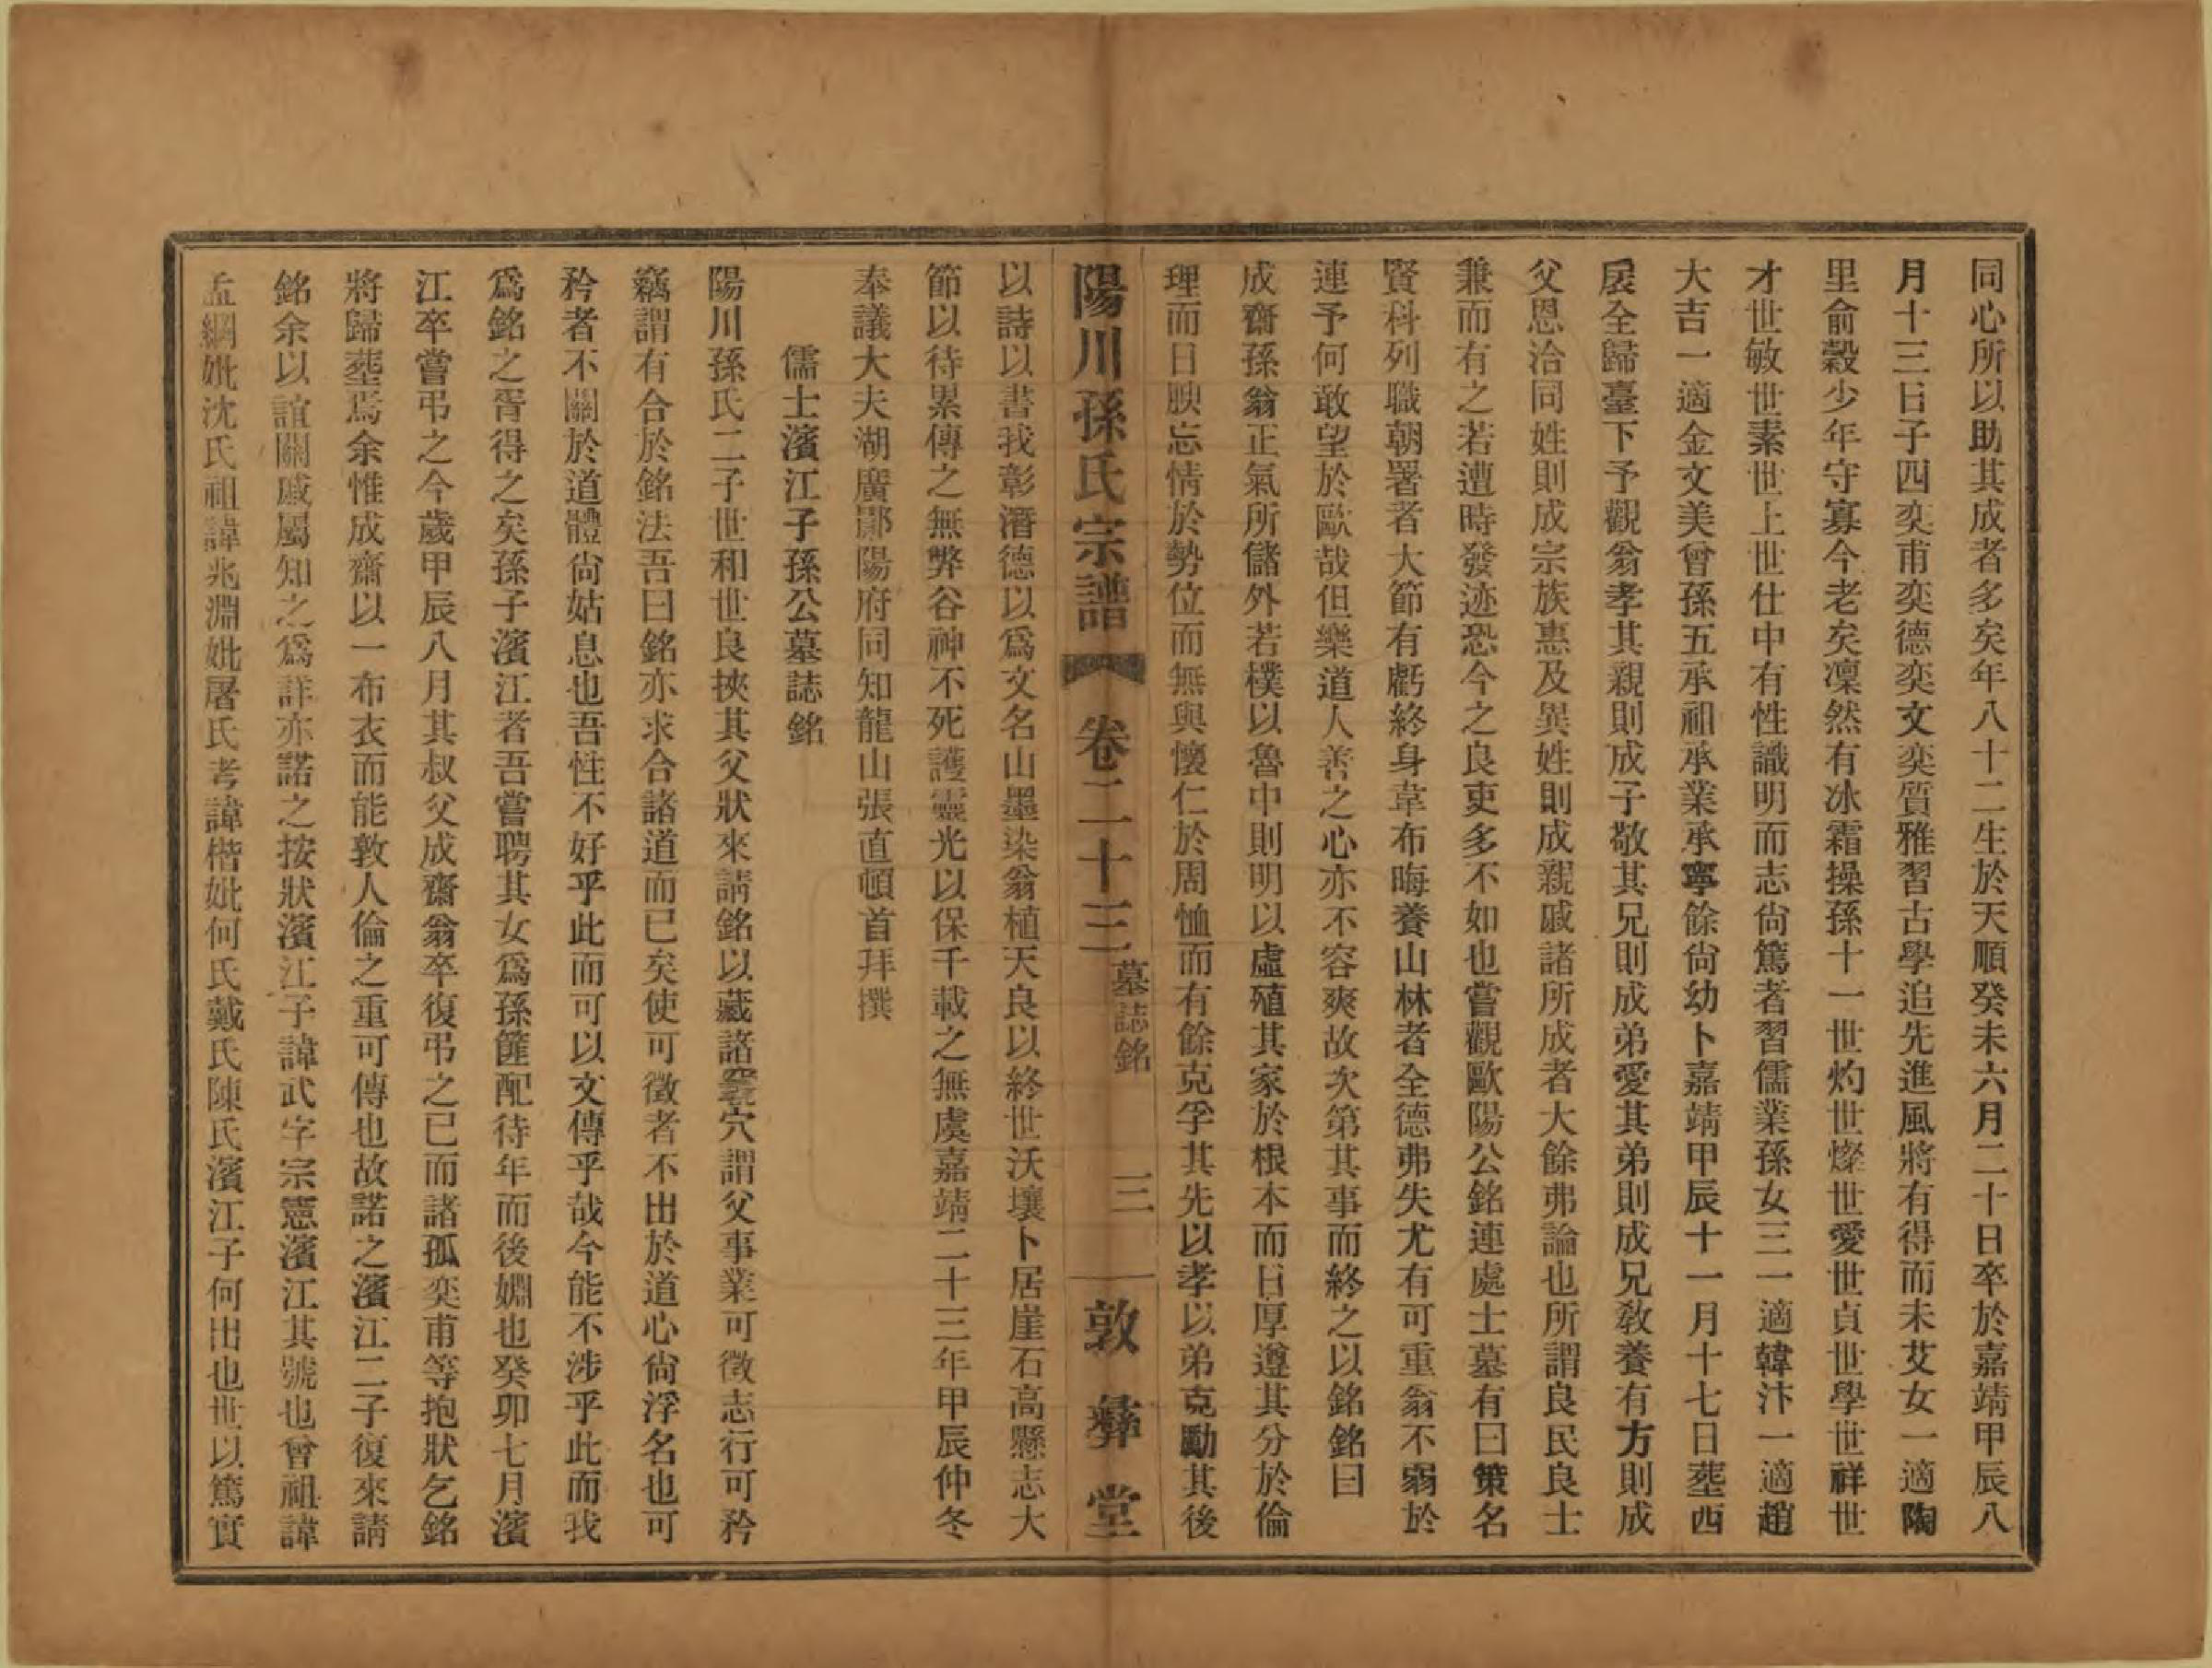 同心所以助其成者多矣年八十二生於天順癸未六月二十日卒於嘉靖甲辰八
月十三日子四奕甫奕德奕文奕質雅習古學追先進風將有得而未艾女一適陶
里俞縠少年守寡今老矣凜然有冰霜操孫十一世灼世燦世愛世貞世學世祥世
才世敏世素世上世仕中有性識明而志尙篤者習儒業孫女三一適韓汴一適趙
大吉一適金文美曾孫五承祖承業承寧餘尙幼卜嘉靖甲辰十一月十七日塟西
扆全歸臺下予觀翁孝其親則成子敬其兄則成弟愛其弟則成兄敎養有方則成
父恩洽同姓則成宗族惠及異姓則成親戚諸所成者大餘弗論也所謂良民良士
兼而有之若遭時發迹恐今之良吏多不如也嘗觀歐陽公銘連處士墓有曰策名
賢科列職朝署者大節有虧終身韋布晦養山林者全德弗失尤有可重翁不弱於
連予何敢望於歐哉但樂道人善之心亦不容爽故次第其事而終之以銘銘曰
成齋孫翁正氣所儲外若樸以魯中則明以虛殖其家於根本而日厚遵其分於倫
理而日腴忘情於勢位而無與懷仁於周恤而有餘克孚其先以孝以弟克勵其後
陽川孫氏宗譜 卷二十三 墓誌銘 三 敦彝堂
以詩以書我彰潛德以爲文名山墨染翁植天良以終世沃壤卜居崖石高懸志大
節以待累傳之無弊谷神不死護靈光以保千載之無虞嘉靖二十三年甲辰仲冬
奉議大夫湖廣鄖陽府同知龍山張直頓首拜撰
儒士濱江子孫公墓誌銘
陽川孫氏二子世和世良挾其父狀來請銘以藏諸窀穴謂父事業可徵志行可矜
竊謂有合於銘法吾曰銘亦求合諸道而已矣使可徵者不出於道心尙浮名也可
矜者不關於道體尙姑息也吾性不好乎此而可以文傳乎哉今能不涉乎此而我
爲銘之胥得之矣孫子濱江者吾嘗聘其女爲孫簉配待年而後嫺也癸卯七月濱
江卒嘗弔之今歲甲辰八月其叔父成齋翁卒復弔之已而諸孤奕甫等抱狀乞銘
將歸塟焉余惟成齋以一布衣而能敦人倫之重可傳也故諾之濱江二子復來請
銘余以誼關戚屬知之爲詳亦諾之按狀濱江子諱武字宗憲濱江其號也曾祖諱
孟綱妣沈氏祖諱兆淵妣屠氏考諱楷妣何氏戴氏陳氏濱江子何出也世以篤實